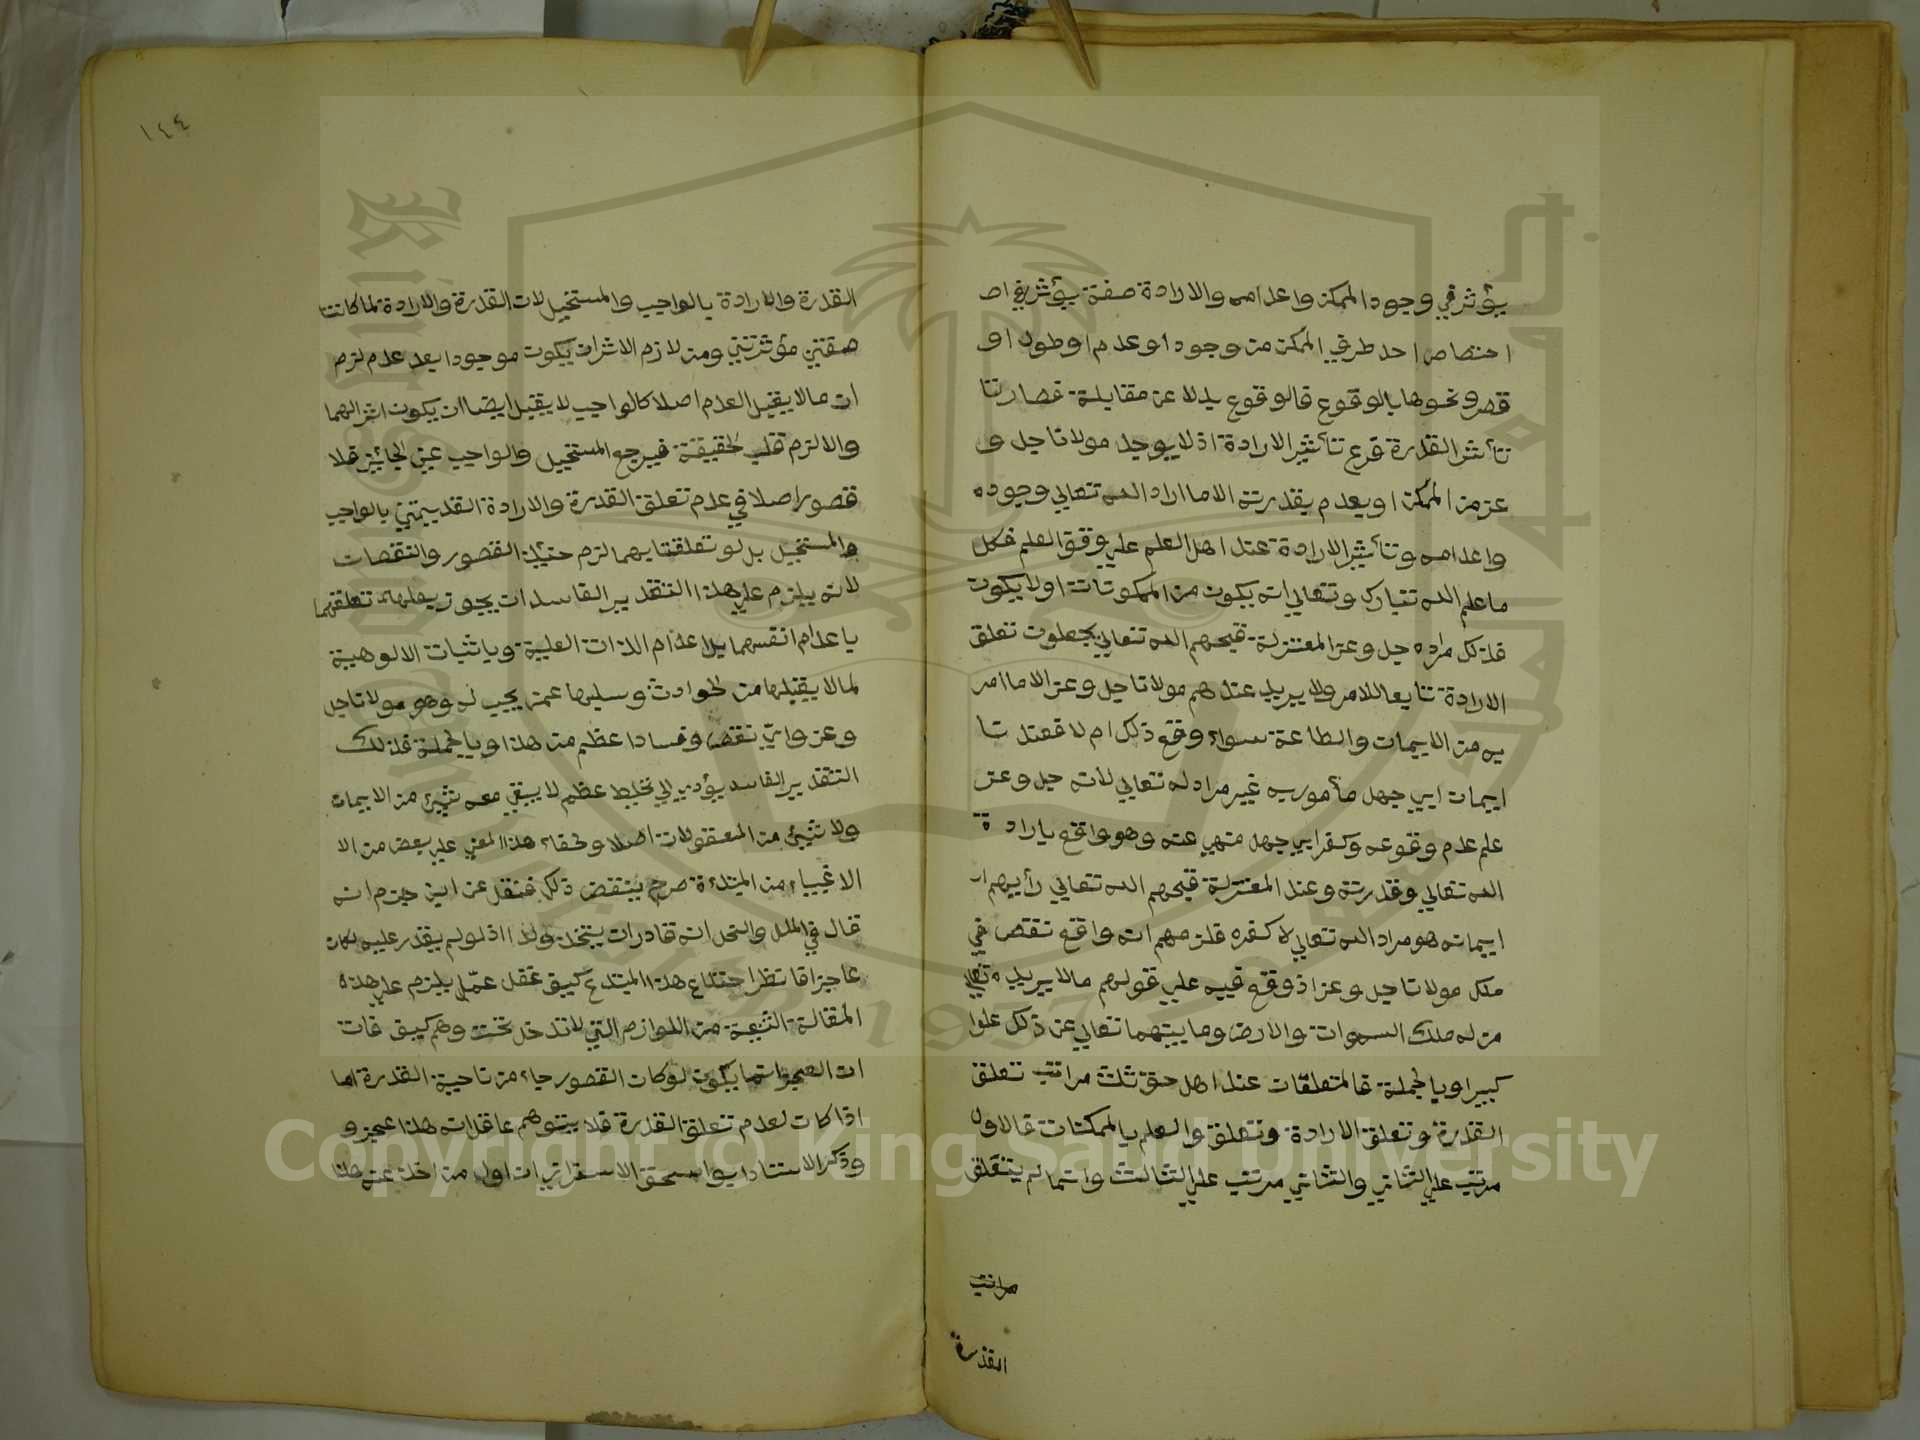 يؤثر في وجود الممكن واعدامه والارادة صفة يؤثر في اص
اختصاص احد طرفي الممكن من وجود اوعدم اوطول او
قصر ونحوها بالوقوع فالوقوع بدلا عن مقابلة فصارتا
تأثير القدرة فرع تأثير الارادة اذ لا يوجد مولانا جل و
عز من الممكن اويعدم بقدرته الا ما اراد الله تعالي وجوده
واعدامه وتأثير الارادة عند اهل العلم علي وفق العلم فكل
ما علم الله تبارك وتعالي انه يكون من الممكونات اولا يكون
فذلك مراده جل وعز المعتزلة قبحهم الله تعالي يجعلون تعلق
الارادة تابعا للامر ولا يريد عندهم مولانا جل وعز الا ما امر
به من الايمان والطاعة سواء وقع ذلك ام لا فعند نا
ايمان ابي جهل مأمور به غير مراد له تعالي لانه جل وعز
علم عدم وقوعه وكفر ابي جهل منهي عنه وهو واقع بارادة
الله تعالي وقدرته وعند المعتزلة قبحهم الله تعالي رأيهم ان
ايمانه هو مراد الله تعالي لا كفره فلزمهم انه واقع نقص في
ملك مولانا جل وعز اذ وقع فيه علي قولهم ما لا يريده تعالي
من له ملك السموات والارض وما بينهما تعالي عن ذلك علوا
كبيرا وبالجملة فالمتعلقات عند اهل حق ثلث مراتب تعلق
القدرة وتعلق الارادة وتعلق والعلم بالممكنات فالاول
مرتب علي الثاني والثاني مرتب علي الثالث وانما لم يتعلق
مراتب
القدرة
١٤٤
القدرة والارادة بالواجب والمستحيل لان القدرة والارادة لما كانتا
صفتين مؤثرتين ومن لازم الاثر ان يكون موجودا بعد عدم لزم
ان ما لا يقبل العدم اصلا كالواجب لا يقبل ايضا ان يكون اثر الهما
والا لزم قلب الحقيقة فيرجع المستحيل والواجب عين الجائز فلا
قصور اصلا في عدم تعلق القدرة والارادة القديمتين بالواجب
والمستحيل بل لو تعلقتا بهما لزم حينئذ القصور والنقصان
لانه يلزم علي هذا التقدير الفاسد ان يجوز تعلقهما
باعدام انفسهما بل اعدام الذات العلية وباثبات الالوهية
لما لا يقبلها من الحوادث وسلبها عمن يجب له وهو مولانا جل
وعز واي نقص وفسادا عظم من هذا وبالجملة فذلك
التقدير الفاسد يؤدي الي تخليط عظيم لا يبقي معه شيئ من الايمان
ولا شيئ من المعقولات اصلا ولخفاء هذا المعني علي بعض من الا
الاغبياء من المبتدعة صرح بنقض ذلك فنقل عن ابن حزم انه
قال في الملل والنحل انه قادر ان يتخذ ولدا اذ لو لم يقدر عليه لكان
عاجزا فانظر اختلاع هذا المبتدع كيف غفل عما يلزم علي هذه
المقالة الشنيعة من اللوازم التي لا تدخل تحت وهم كيف فات
ان العجز انما يكون لو كان القصور جاء من ناحية القدرة اما
اذا كان لعدم تعلق القدرة فلا يتوهم عاقل ان هذا عجز و
وذكر الاستاد ابو اسحق الاسفرايني ان اول من اخذ عنه هذا